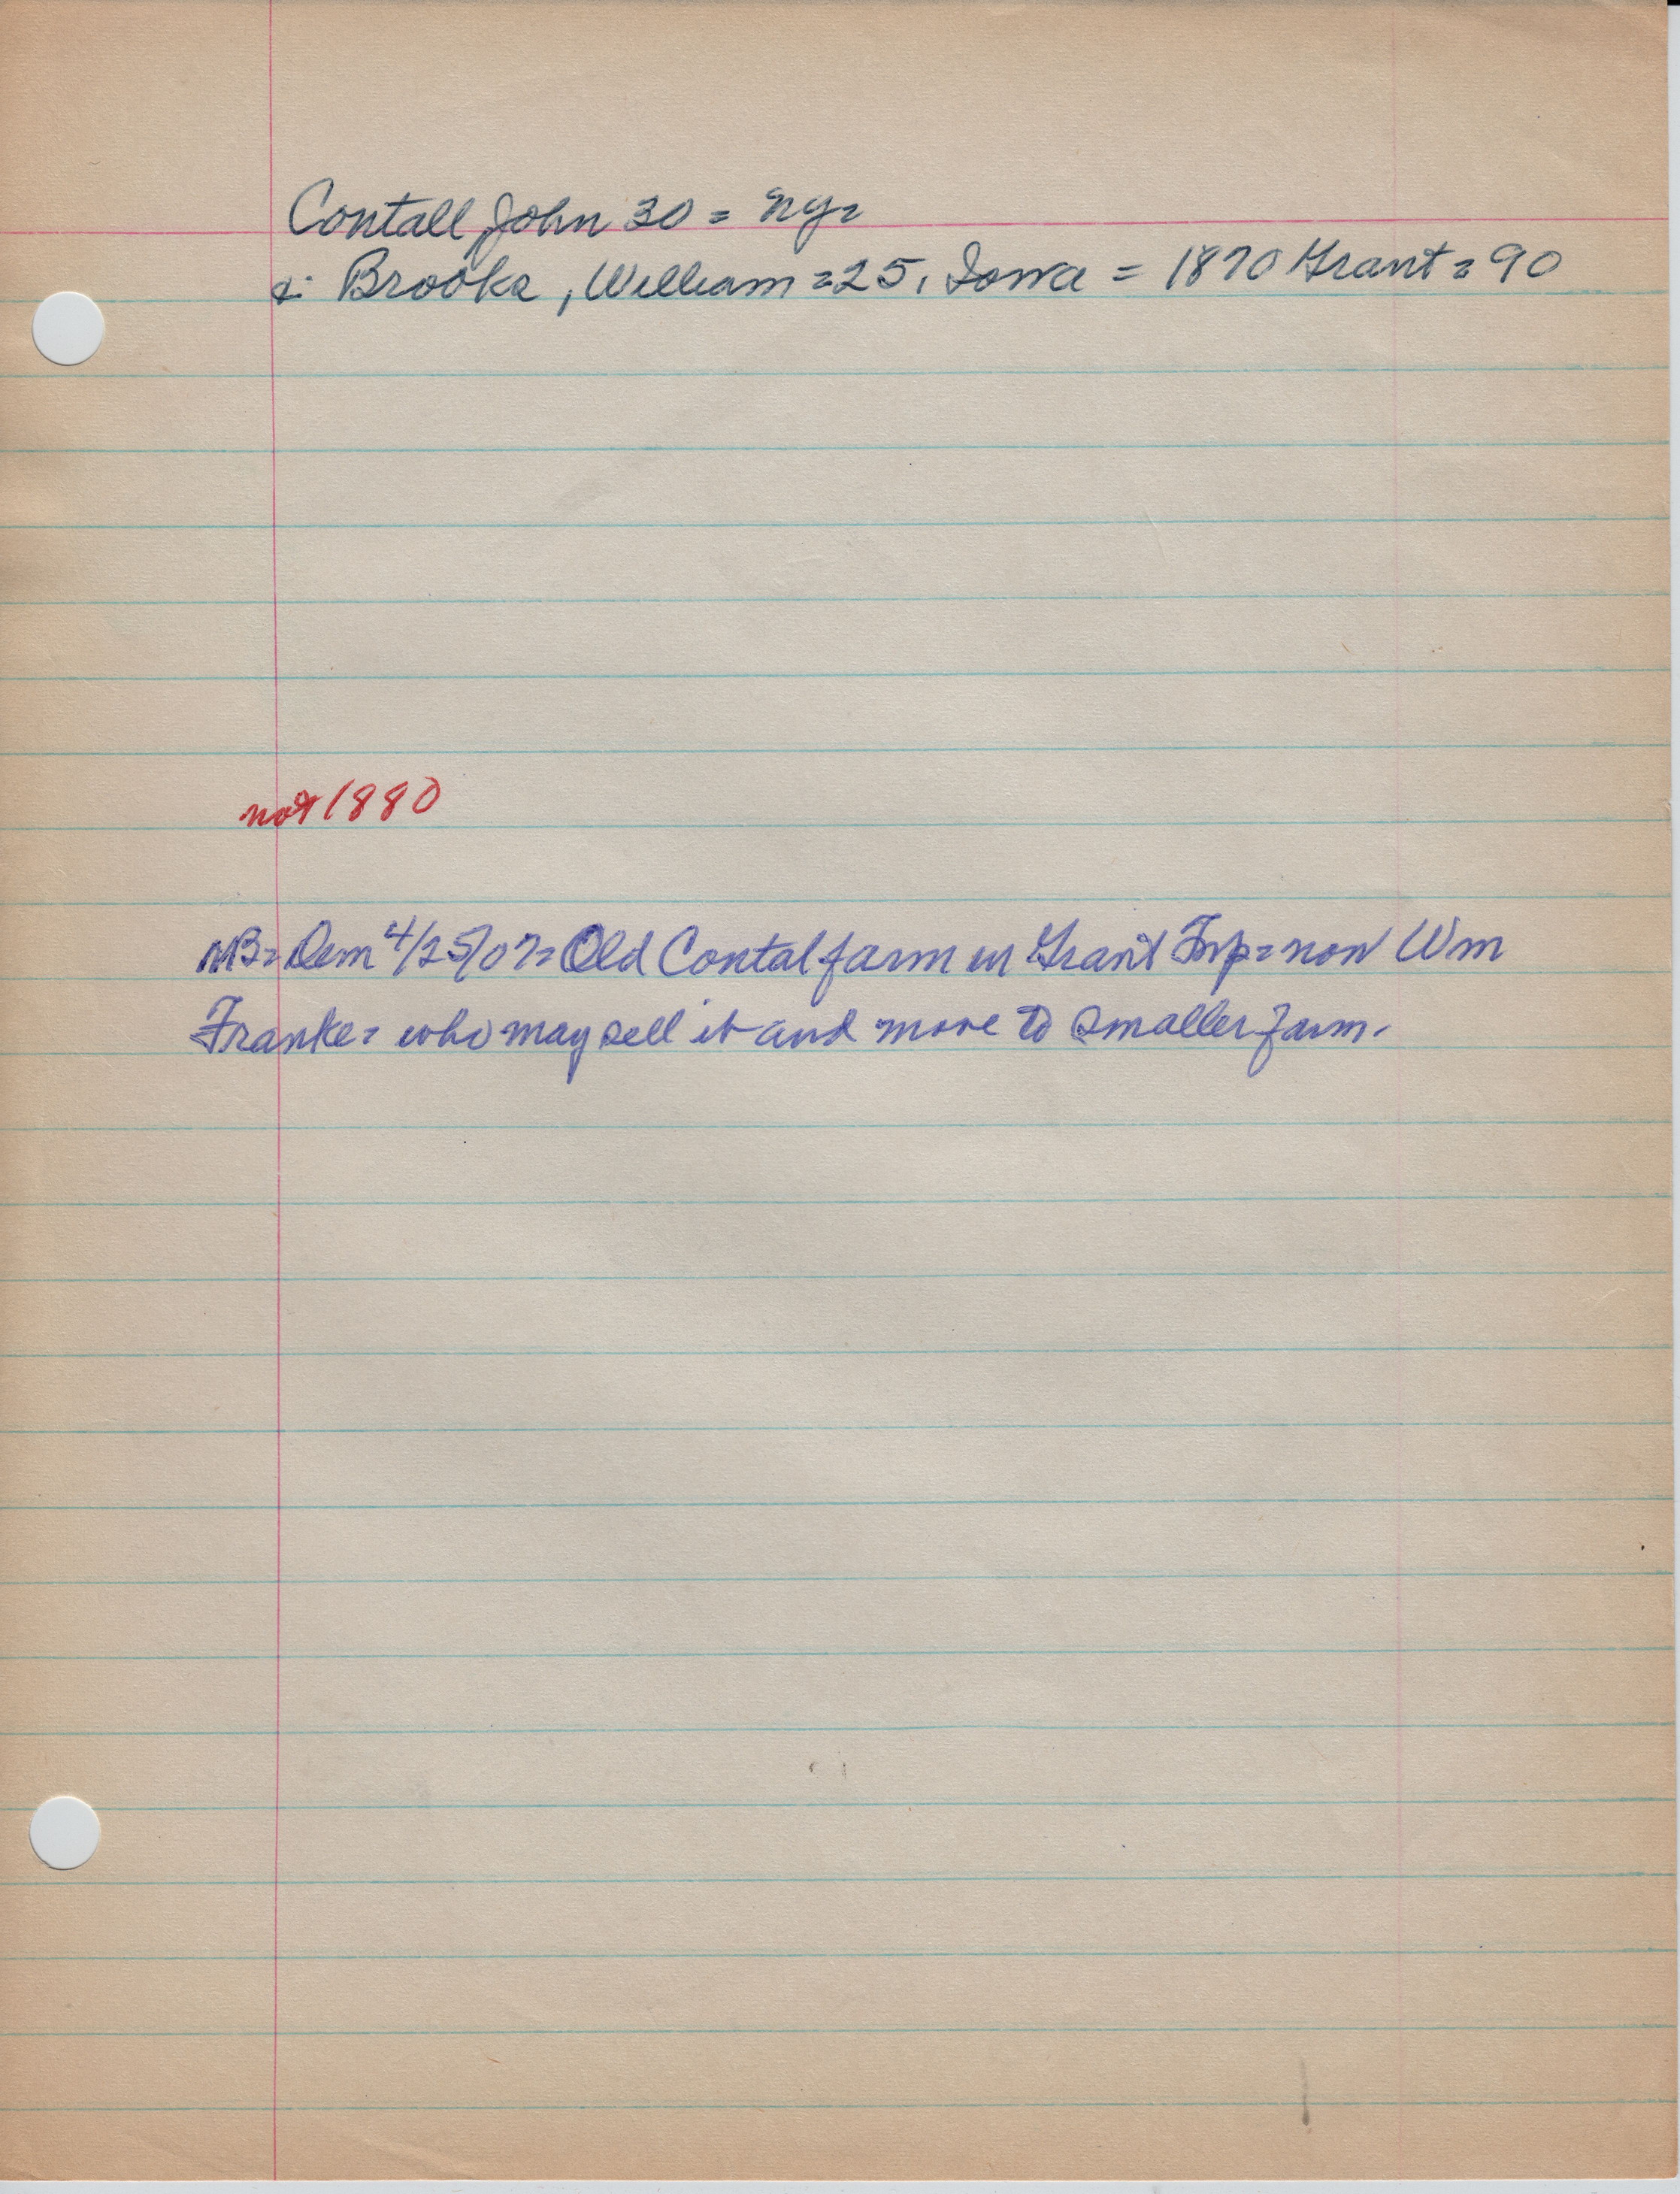 Contall, John 30 = NY=
&: Brooks, William = 25, Iowa = 1870 Grant = 90
not 1880
NB= Dem 4/25/07= Old Contal farm in Grant Twp= now Wm
Franke= who may sell it and move to smaller farm.